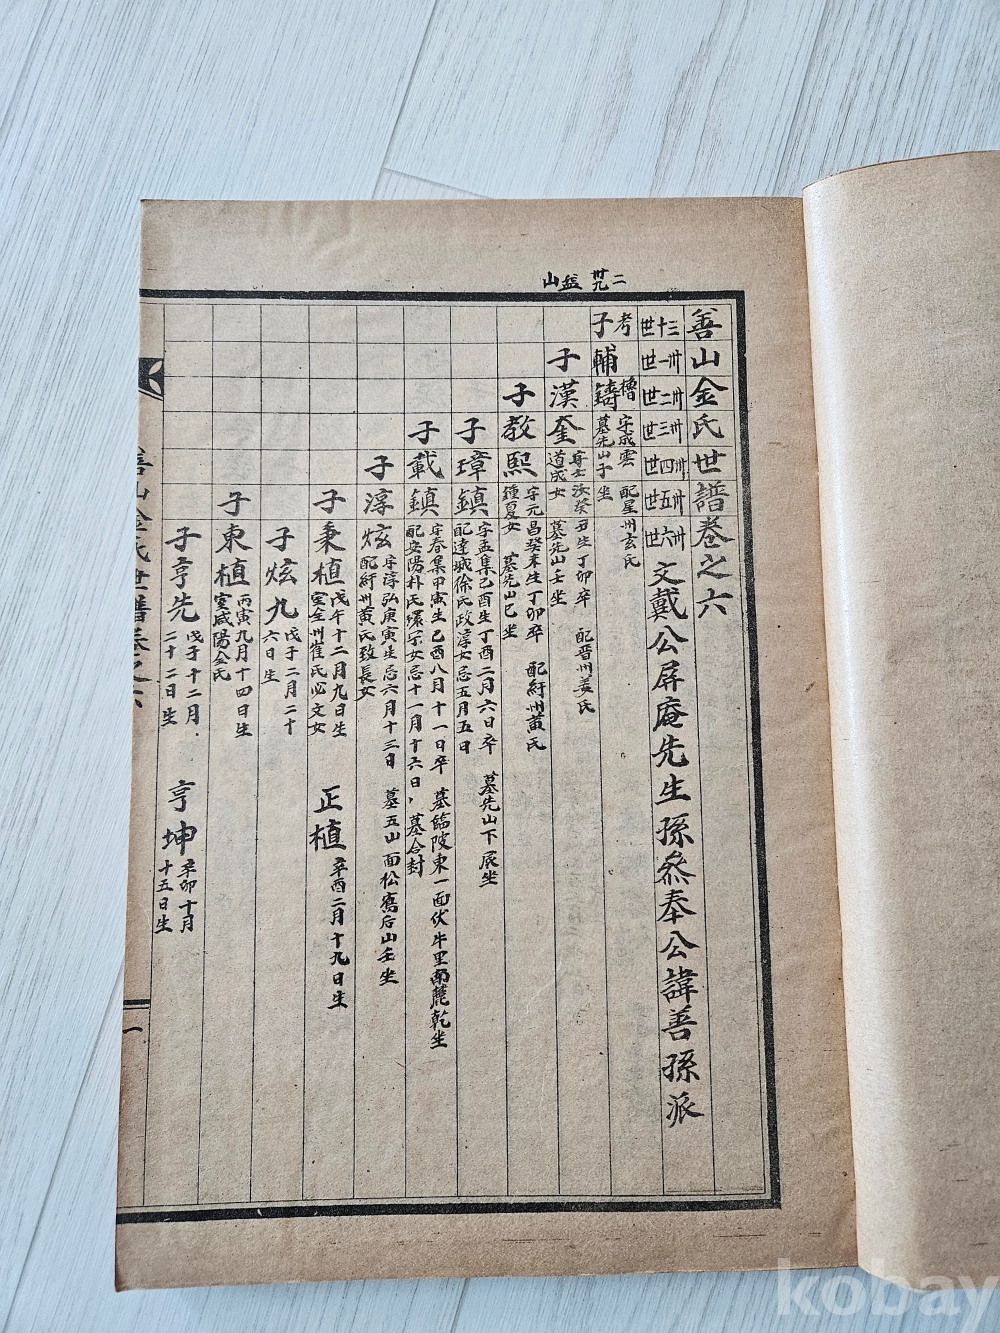 二 卅九 益山
善山金氏世譜卷之六
三十世 卅一世 卅二世 卅三世 卅四世 卅五世 卅六世
文戴公屏庵先生孫叅奉公諱善孫派
考櫓 字成雲 配星州玄氏
子輔鑄 墓先山子坐
子漢奎 字士汝癸丑生丁卯卒 配晋州姜氏
道成女 墓先山壬坐
子教熙 字元昌癸未生丁卯卒 配紆州黄氏
鍾夏女 墓先山巳坐
子璋鎮 字孟集己酉生丁酉二月六日卒 墓先山下辰坐
配達城徐氏政淳女忌五月五日
子載鎮 字春集甲寅生己酉八月十一日卒 墓臨陂東一面伏牛里南麓乾坐
配安陽朴氏環宗女忌十一月十六日, 墓合封
子淳炫 字淳弘庚寅生忌六月十三日 墓五山面松窩后山壬坐
配紆州黄氏致長女
子秉植 戊午十二月九日生
室全州崔氏必文女
正植 辛酉二月十九日生
子炫九 戊子二月二十
六日生
子東植 丙寅九月十四日生
室咸陽金氏
子亨先 戊子十二月
二十二日生
亨坤 辛卯十月
十五日生
善山金氏世譜卷之六
一
kobay